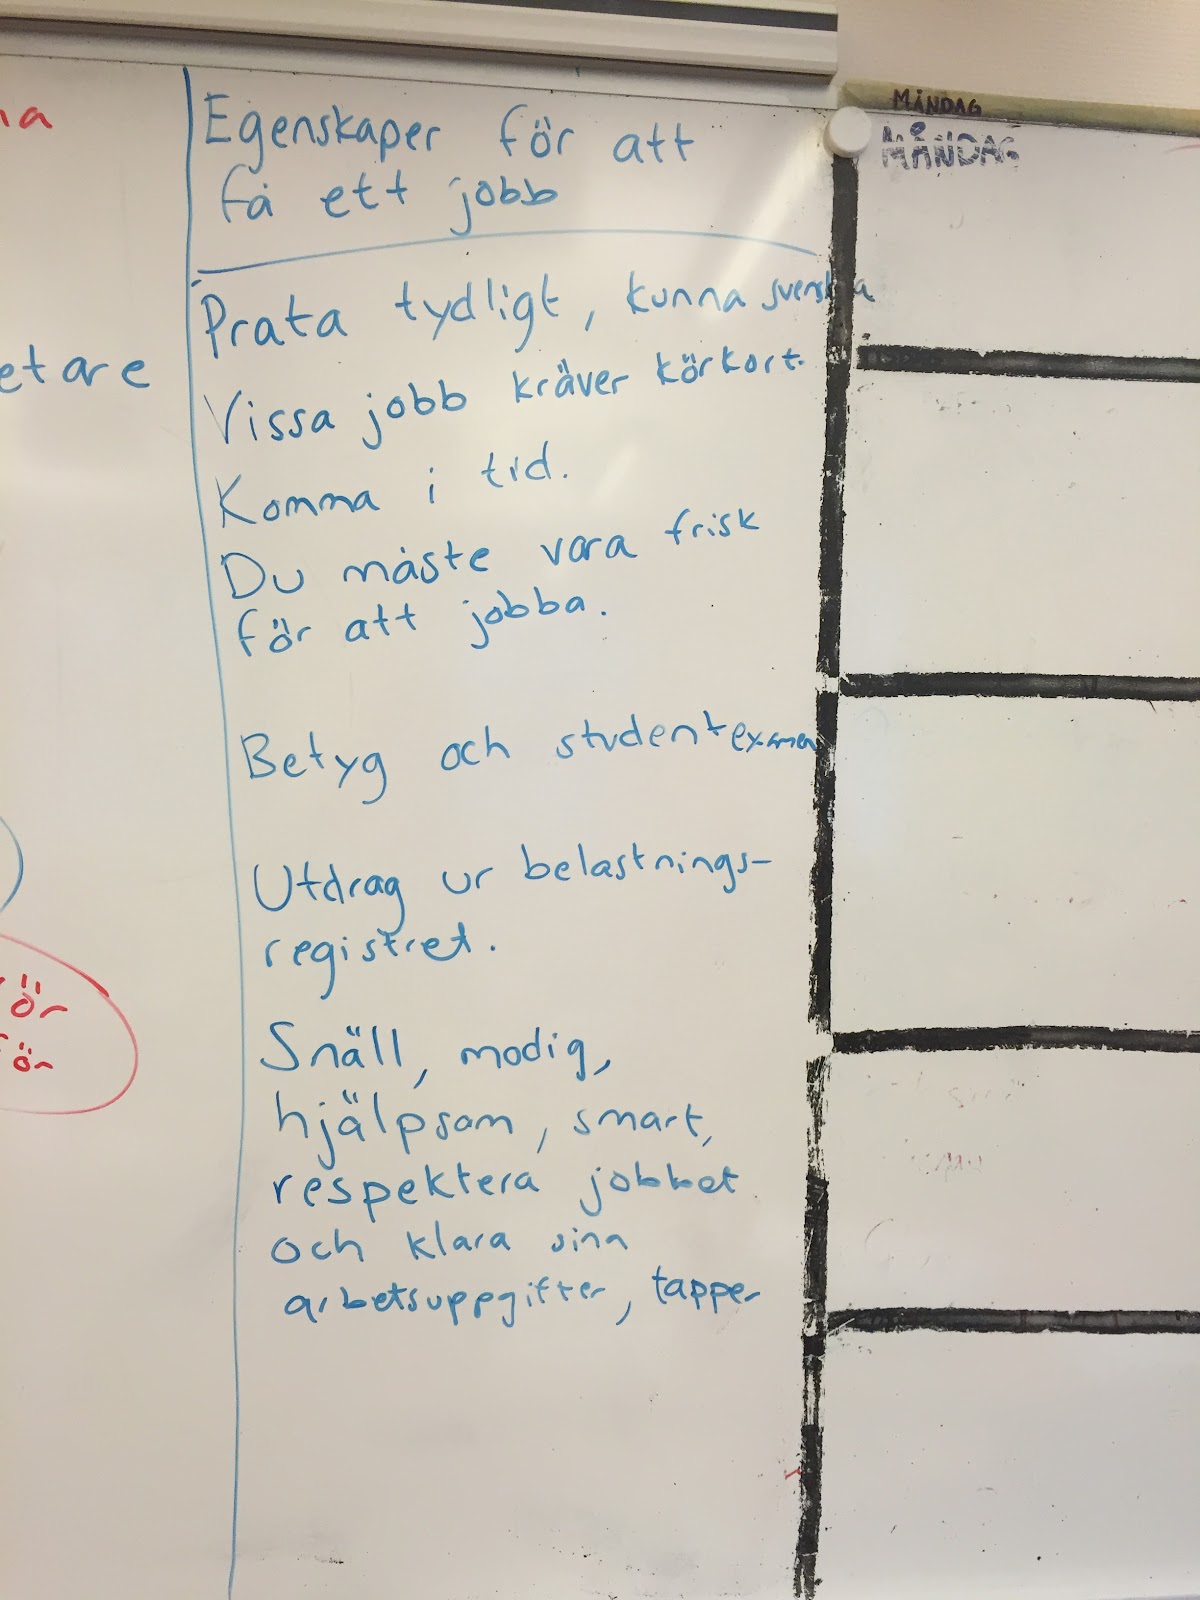 na
etare
ör
ör
Egenskaper för att
få ett jobb
Prata tydligt, kunna svenska
Vissa jobb kräver körkort.
Komma i tid.
Du måste vara frisk
för att jobba.
Betyg och studentexamen
Utdrag ur belastnings-
registret.
Snäll, modig,
hjälpsam, smart,
respektera jobbet
och klara sina
arbetsuppgifter, tapper
MÅNDAG
MÅNDAG